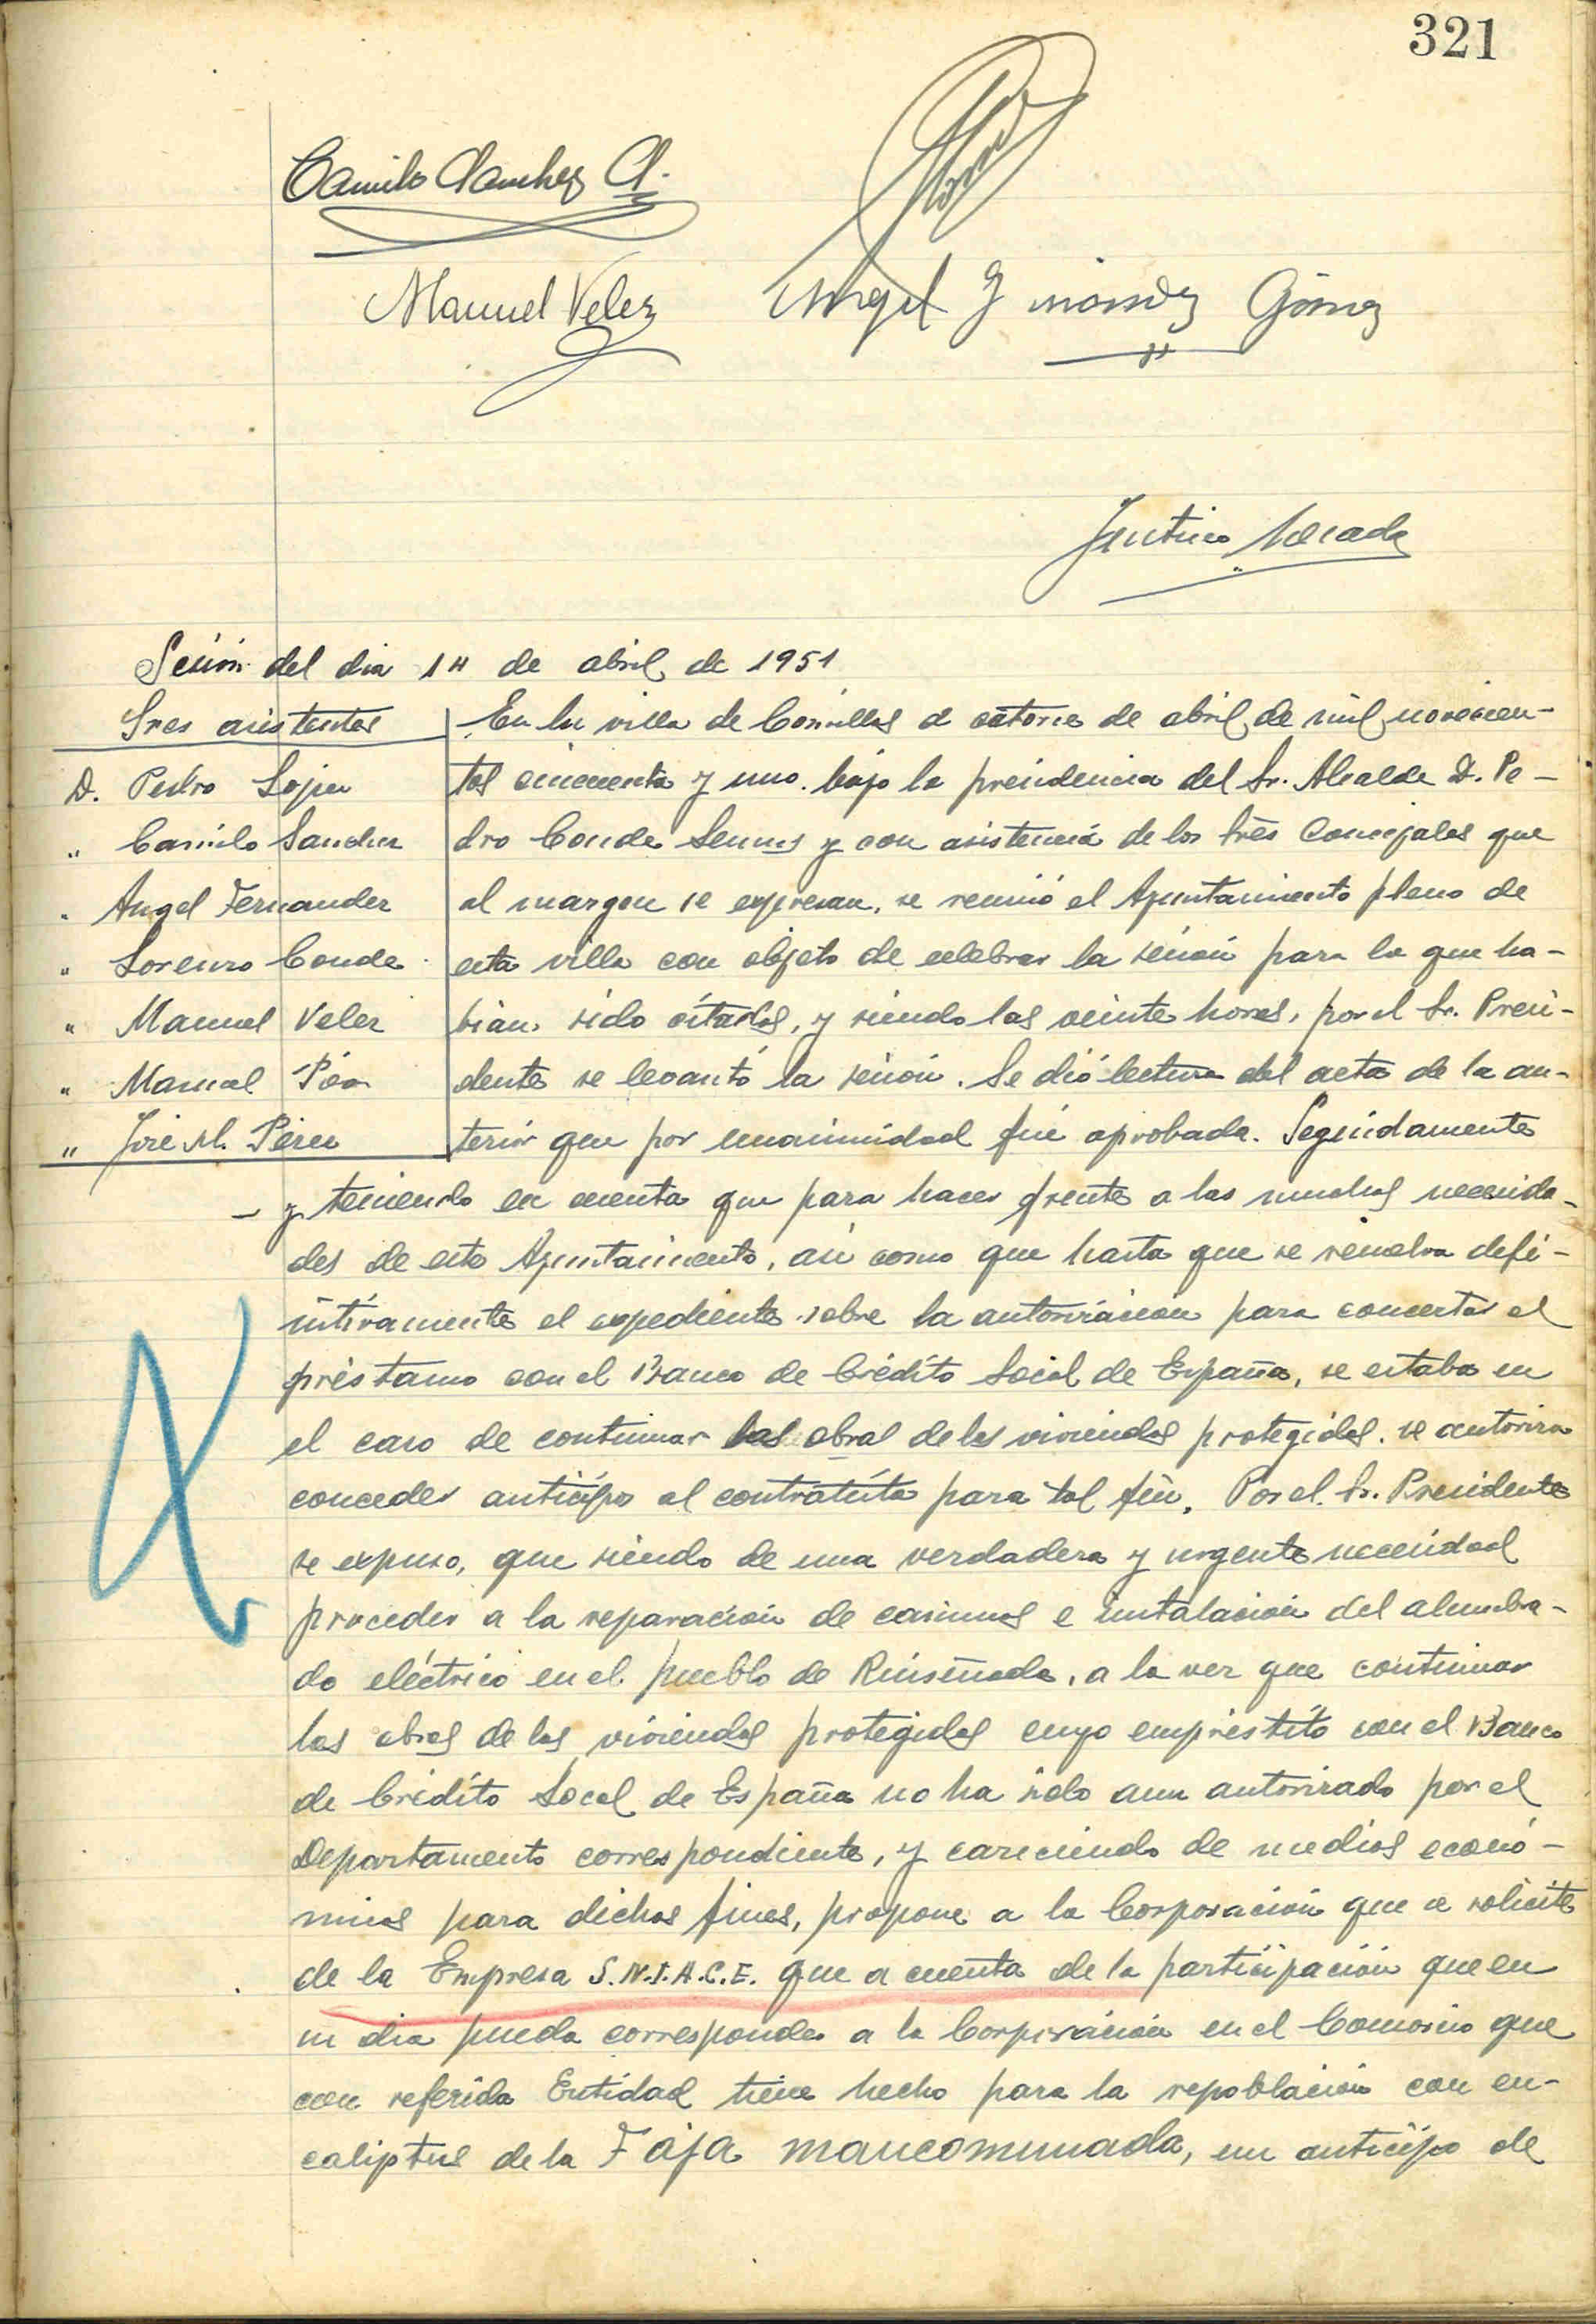 321
Camilo Sanchez A.
Manuel Velez
Angel Gómez
Sesión del dia 14 de abril de 1951
Sres asistentes
D. Pedro
" Camilo Sanchez
" Angel Fernandez
" Lorenzo Conde
" Manuel Velez
" Manuel
" José M. Pérez
En la villa de Comillas a catorce de abril de mil novecien-
tos cincuenta y uno, bajo la presidencia del Sr. Alcalde D. Pe-
dro Conde y con asistencia de los Sres Concejales que
al margen se expresan, se reunió el Ayuntamiento pleno de
esta villa con objeto de celebrar la sesión para la que ha-
bian sido citados, y siendo las veinte horas, por el Sr. Presi-
dente se levantó la sesión. Se dió lectura del acta de la an-
terior que por unanimidad fué aprobada. Seguidamente
- y teniendo en cuenta que para hacer frente a las muchas necesida-
des de este Ayuntamiento, asi como que hasta que se resuelva defi-
nitivamente el expediente sobre la autorización para concertar el
préstamo con el Banco de Crédito Local de España, se estaba en
el caso de continuar las obras de las viviendas protegidas. se autoriza
conceder anticipo al contratista para tal fin. Por el Sr. Presidente
se expuso, que siendo de una verdadera y urgente necesidad
proceder a la reparación de caminos e instalación del alumbra-
do eléctrico en el pueblo de Ruiseñada, a la vez que continuar
las obras de las viviendas protegidas cuyo empréstito con el Banco
de Crédito Local de España no ha sido aun autorizado por el
Departamento correspondiente, y careciendo de medios econó-
micos para dichos fines, propone a la Corporación que se solicite
de la Empresa S.N.I.A.C.E. que a cuenta de la participación que en
su dia pueda corresponder a la Corporación en el Consorcio que
con referida Entidad tiene hecho para la repoblación con eu-
caliptus de la Faja mancomunada, un anticipo de